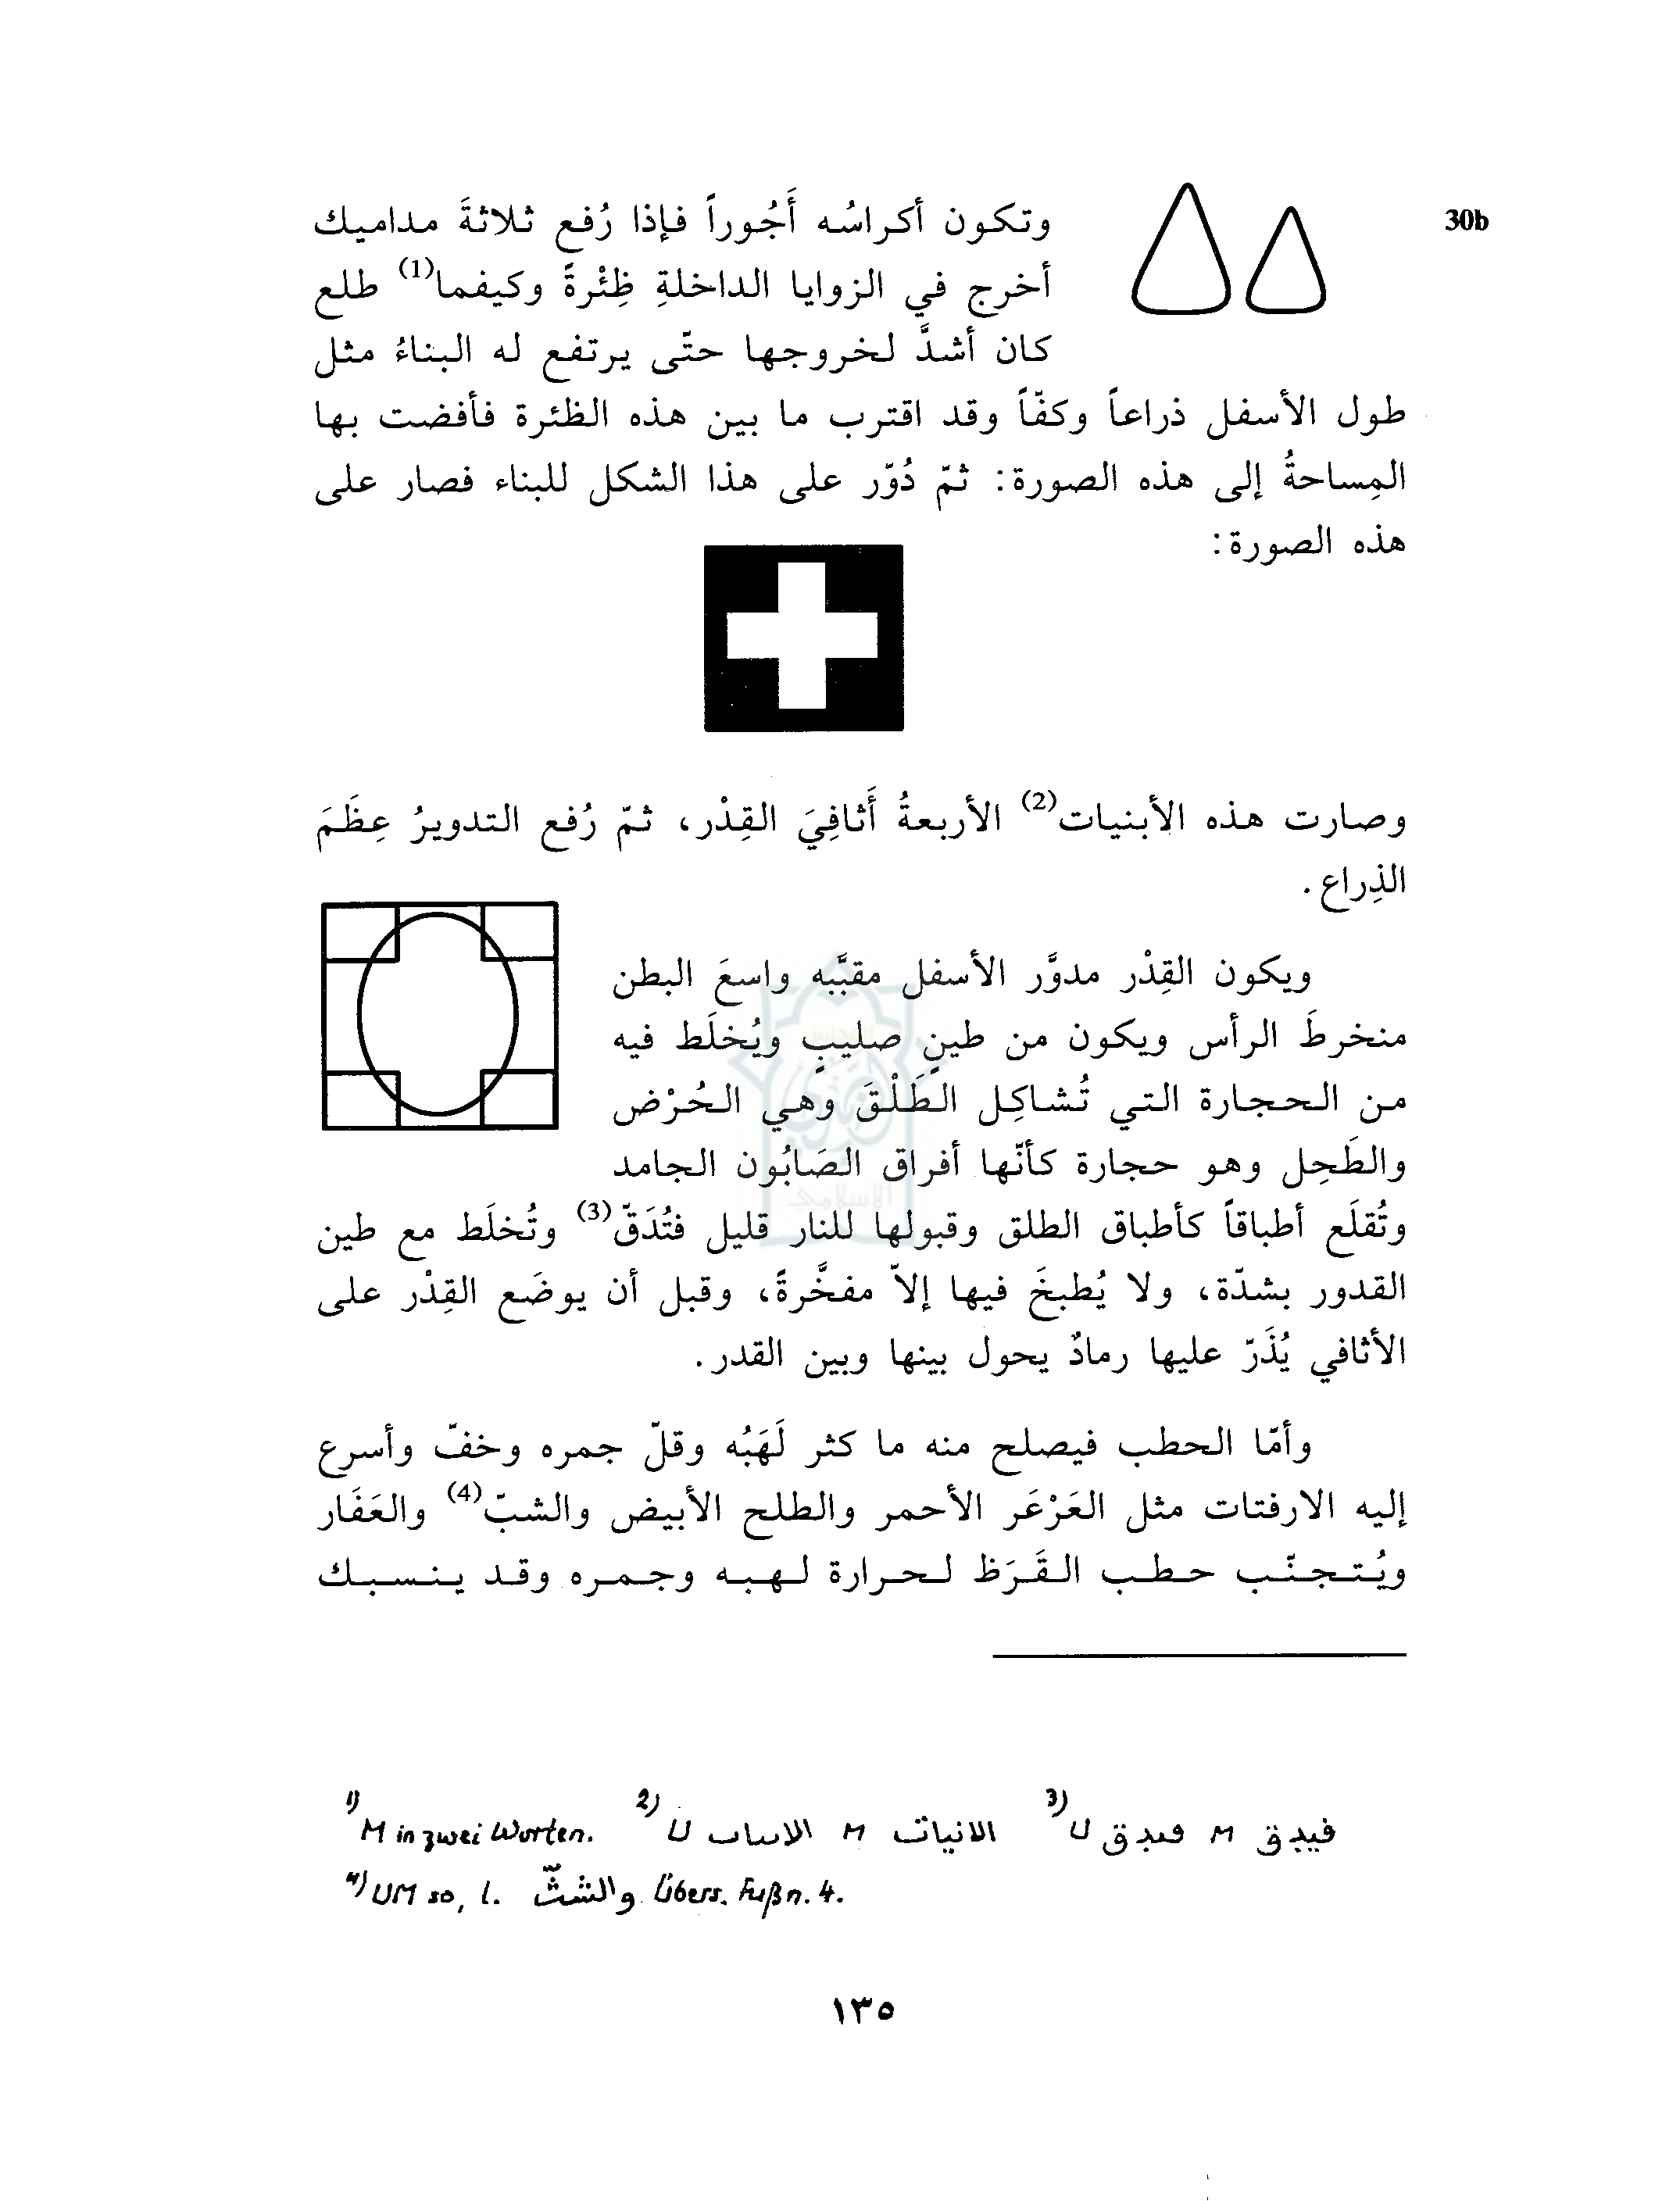 30b
وتكون أكراسُه أَجُوراً فإذا رُفع ثلاثةَ مداميك
أخرج في الزوايا الداخلةِ ظِئْرةً وكيفما(1) طلع
كان أشدَّ لخروجها حتّى يرتفع له البناءُ مثل
طول الأسفل ذراعاً وكفّاً وقد اقترب ما بين هذه الظئرة فأفضت بها
المِساحةُ إلى هذه الصورة: ثمّ دُوّر على هذا الشكل للبناء فصار على
هذه الصورة:
وصارت هذه الأبنيات(2) الأربعةُ أَثافِيَ القِدْر، ثمّ رُفع التدويرُ عِظَمَ
الذِراع.
ويكون القِدْر مدوَّر الأسفل مقبَّبه واسعَ البطن
منخرطَ الرأس ويكون من طينٍ صليبٍ ويُخلَط فيه
من الحجارة التي تُشاكِل الطَلْقَ وهي الحُرْض
والطَحِل وهو حجارة كأنّها أفراق الصَابُون الجامد
وتُقلَع أطباقاً كأطباق الطلق وقبولها للنار قليل فتُدَقّ(3) وتُخلَط مع طين
القدور بشدّة، ولا يُطبخَ فيها إلاّ مفخَّرةً، وقبل أن يوضَع القِدْر على
الأثافي يُذَرّ عليها رمادٌ يحول بينها وبين القدر.
وأمّا الحطب فيصلح منه ما كثر لَهَبُه وقلّ جمره وخفّ وأسرع
إليه الارفتات مثل العَرْعَر الأحمر والطلح الأبيض والشبّ(4) والعَفَار
ويُتجنّب حطب القَرَظ لحرارة لهبه وجمره وقد ينسبك
1) M in zwei Worten. 2) U الاساب M الانيات 3) U فىدق M فيدق
4) UM so, l. والشثّ Übers. Fußn. 4.
١٣٥